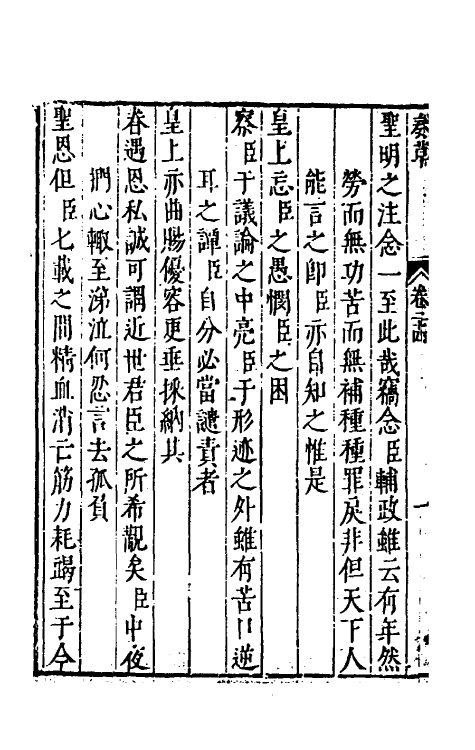 奏草
卷二
聖明之注念一至此哉竊念臣輔政雖云有年然
勞而無功苦而無補種種罪戾非但天下人
能言之即臣亦自知之惟是
皇上忘臣之愚憫臣之困
察臣于議論之中亮臣于形迹之外雖有苦口逆
耳之譚臣自分必當譴責者
皇上亦曲賜優容更垂採納其
眷遇恩私誠可謂近世君臣之所希覯矣臣中夜
捫心輙至涕泣何忍言去孤負
聖恩但臣七載之間精血消亡筋力耗竭至于今